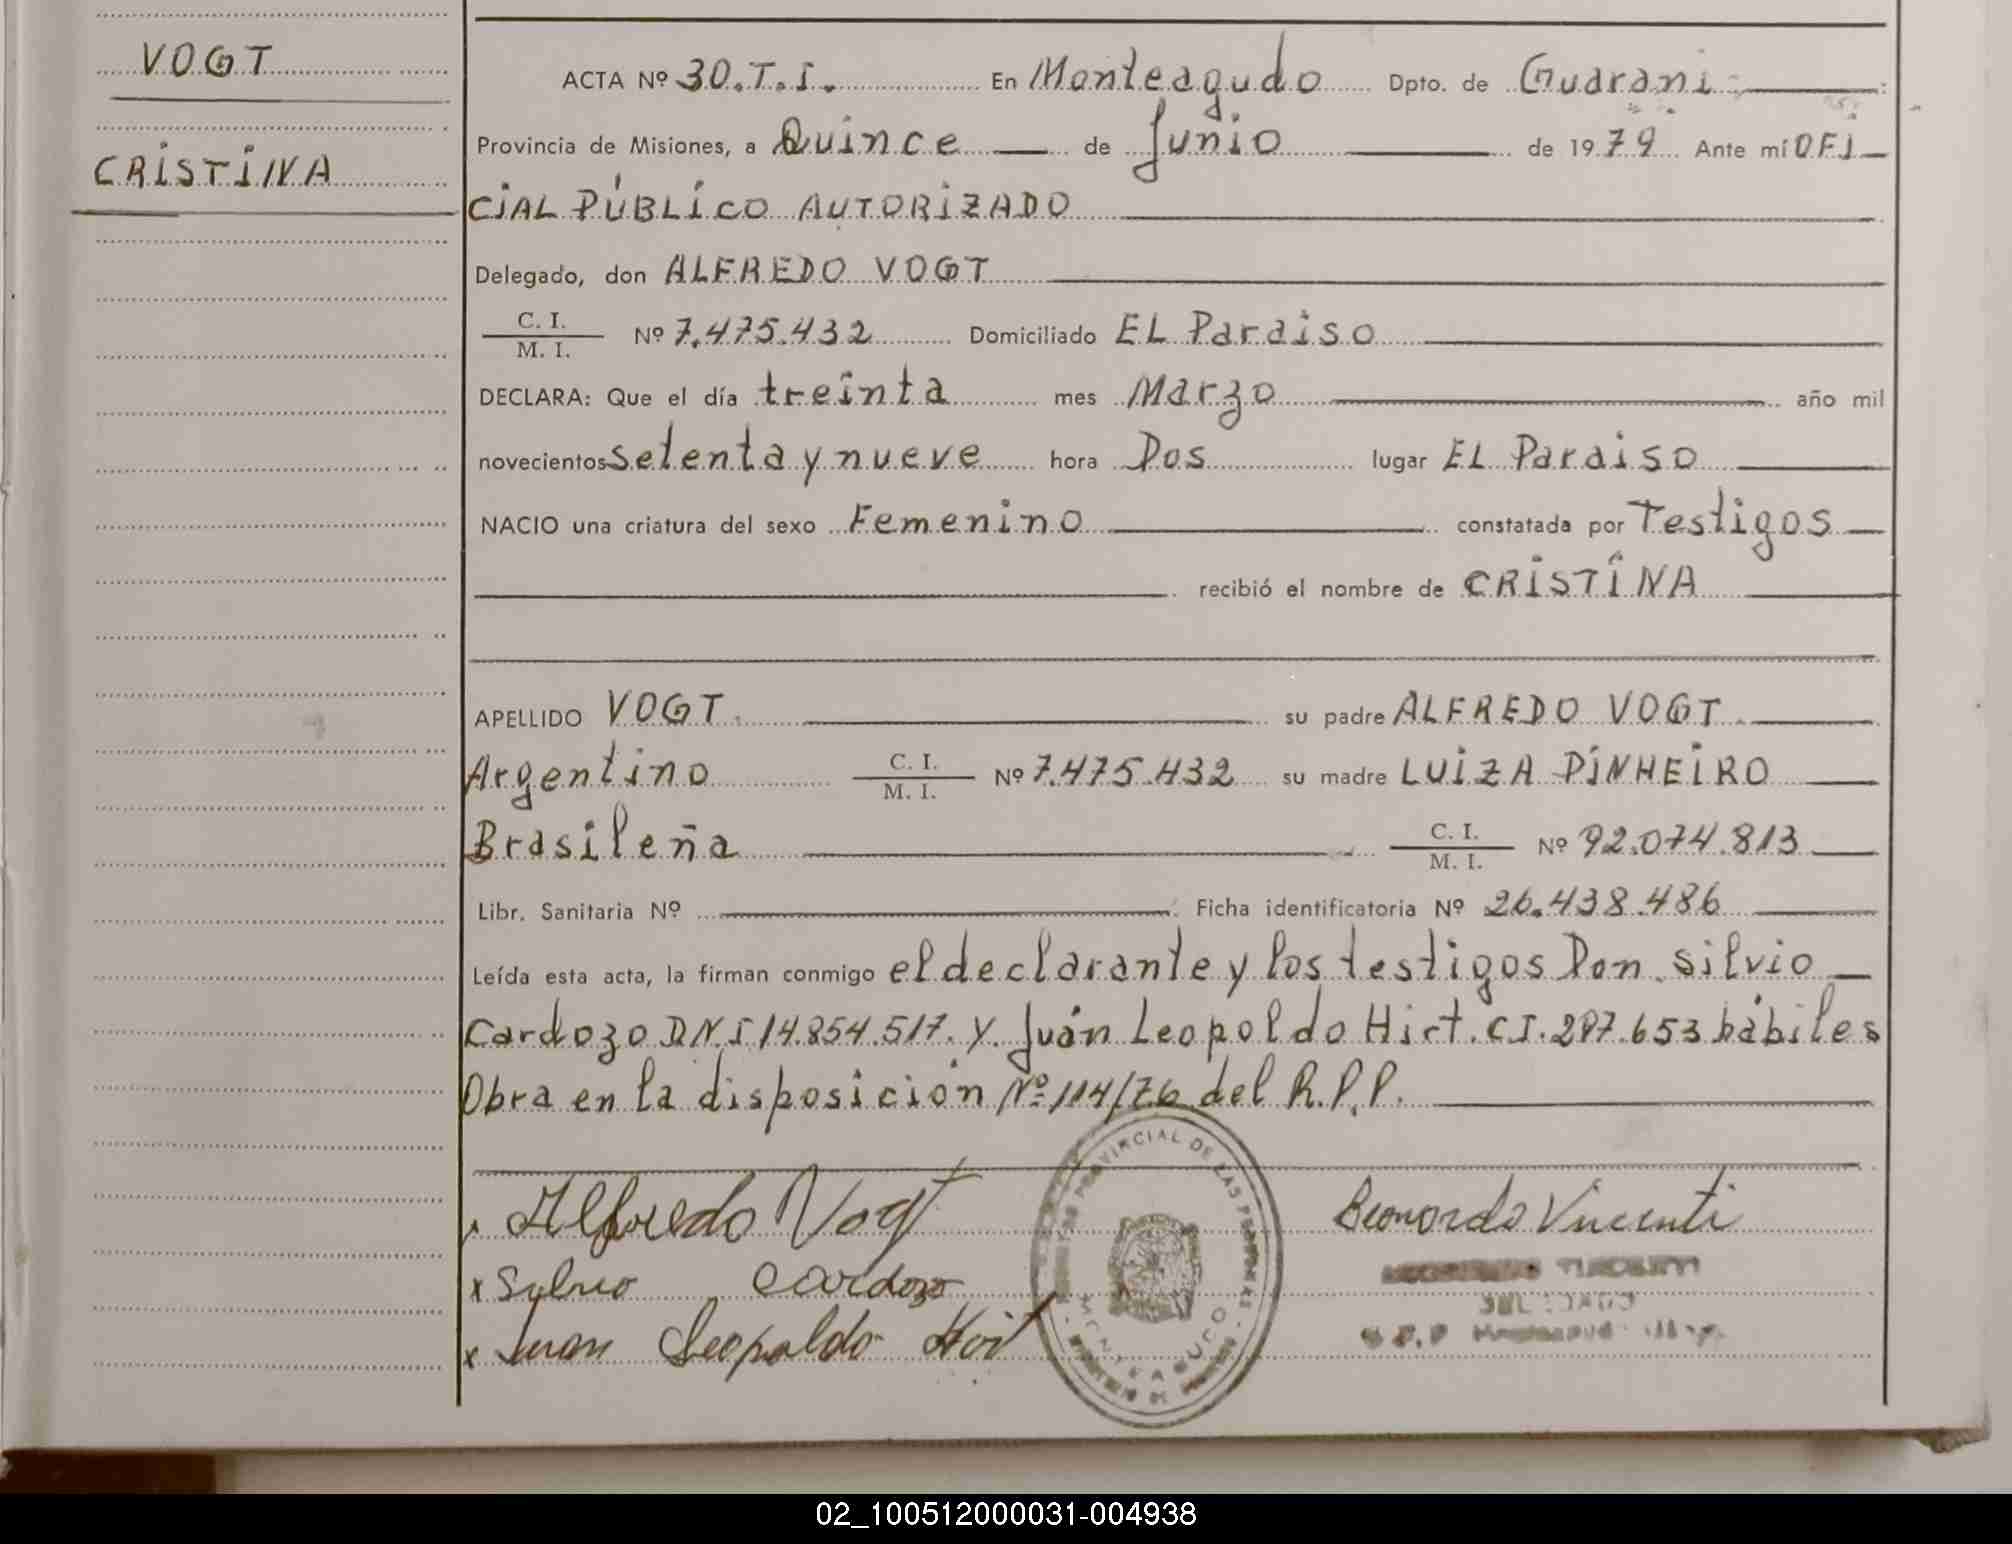 VOGT
CRISTINA
ACTA Nº 30.T.I. En Monteagudo Dpto. de Guarani
Provincia de Misiones, a Quince de Junio de 1979 Ante mí OFI
CIAL PÚBLICO AUTORIZADO
Delegado, don ALFREDO VOGT
C. I. / M. I. Nº 7.475.432 Domiciliado EL Paraiso
DECLARA: Que el día treinta mes Marzo año mil
novecientos setenta y nueve hora Dos lugar EL Paraiso
NACIO una criatura del sexo Femenino constatada por Testigos
recibió el nombre de CRISTINA
APELLIDO VOGT su padre ALFREDO VOGT
Argentino C. I. / M. I. Nº 7.475.432 su madre LUIZA PINHEIRO
Brasileña C. I. / M. I. Nº 92.074.813
Libr. Sanitaria Nº Ficha identificatoria Nº 26.438.486
Leída esta acta, la firman conmigo el declarante y los testigos Don Silvio
Cardozo DNI 14.854.517. Y Juán Leopoldo Hirt. C.I. 297.653 hábiles
Obra en la disposición Nº 114/76 del R.P.P.
Alfredo Vogt
x Sylvio Cardozo
x Juan Leopoldo Hirt
PROVINCIAL DE LAS PERSONAS
MONTEAGUDO
02_100512000031-004938